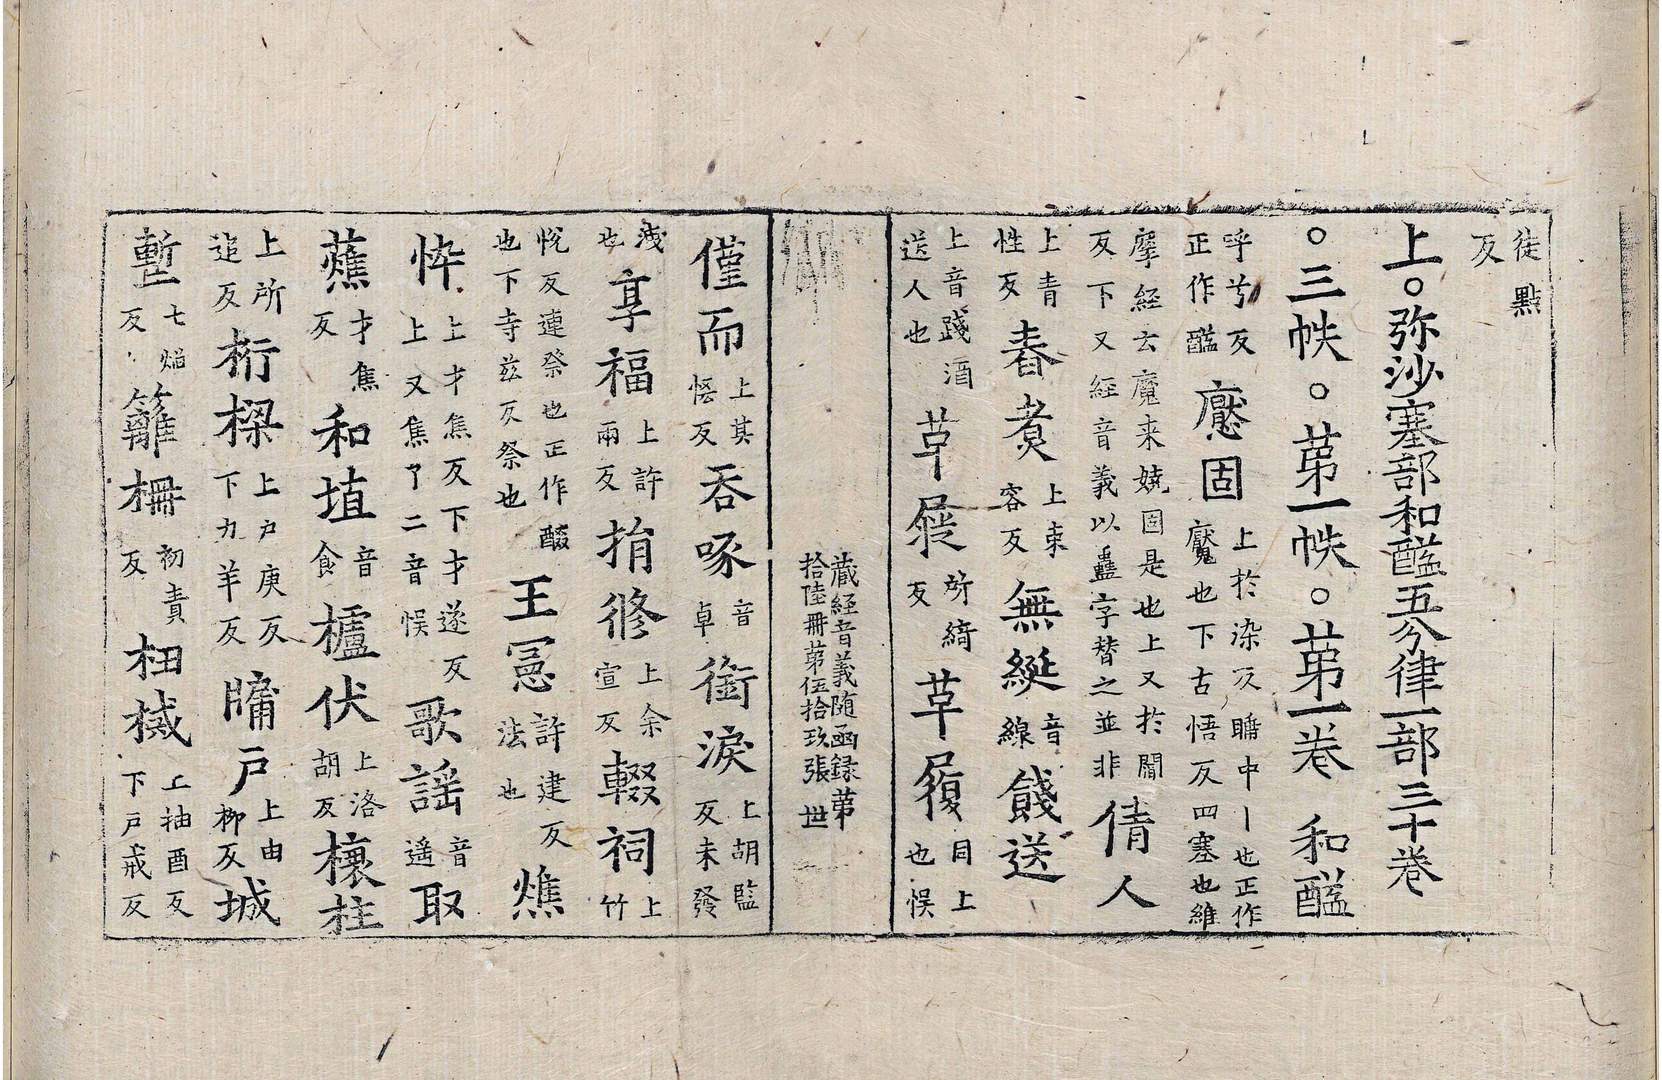 徒點反
上。弥沙塞部和醯五分律一部三十卷
。三帙。第一帙。第一卷 和醯
呼兮反正作醯 懕固 上於染反䁾中丨也正作魘也下古悟反四塞也維
摩經云魔来嬈固是也上又於閻反下又經音義以蠱字替之並非 倩人
上青性反 春煑 上束容反 無綖 音線 餞送
上音踐酒送人也 草屣 所綺反 草履 同上也悮
蔵經音義随函録苐拾陸冊苐伍拾玖張 世
僅而 上其悋反 吞啄 音卓 銜淚 上胡監反未發
洩也 享福 上許兩反 捐修 上余宣反 輟祠 上竹
恱反連祭也正作醊也下寺兹反祭也 王𡨥 許建反法也 燋
悴 上才焦反下才遂反上又焦爫二音悮 歌謡 音遥 取
蕉 才焦反 和埴 音食 櫨伏 上洛胡反 欀柱
上所追反 桁樑 上户庚反下力羊反 牗户 上由柳反 城
壍 七焰反 籬柵 初責反 杻械 上抽酉反下户戒反